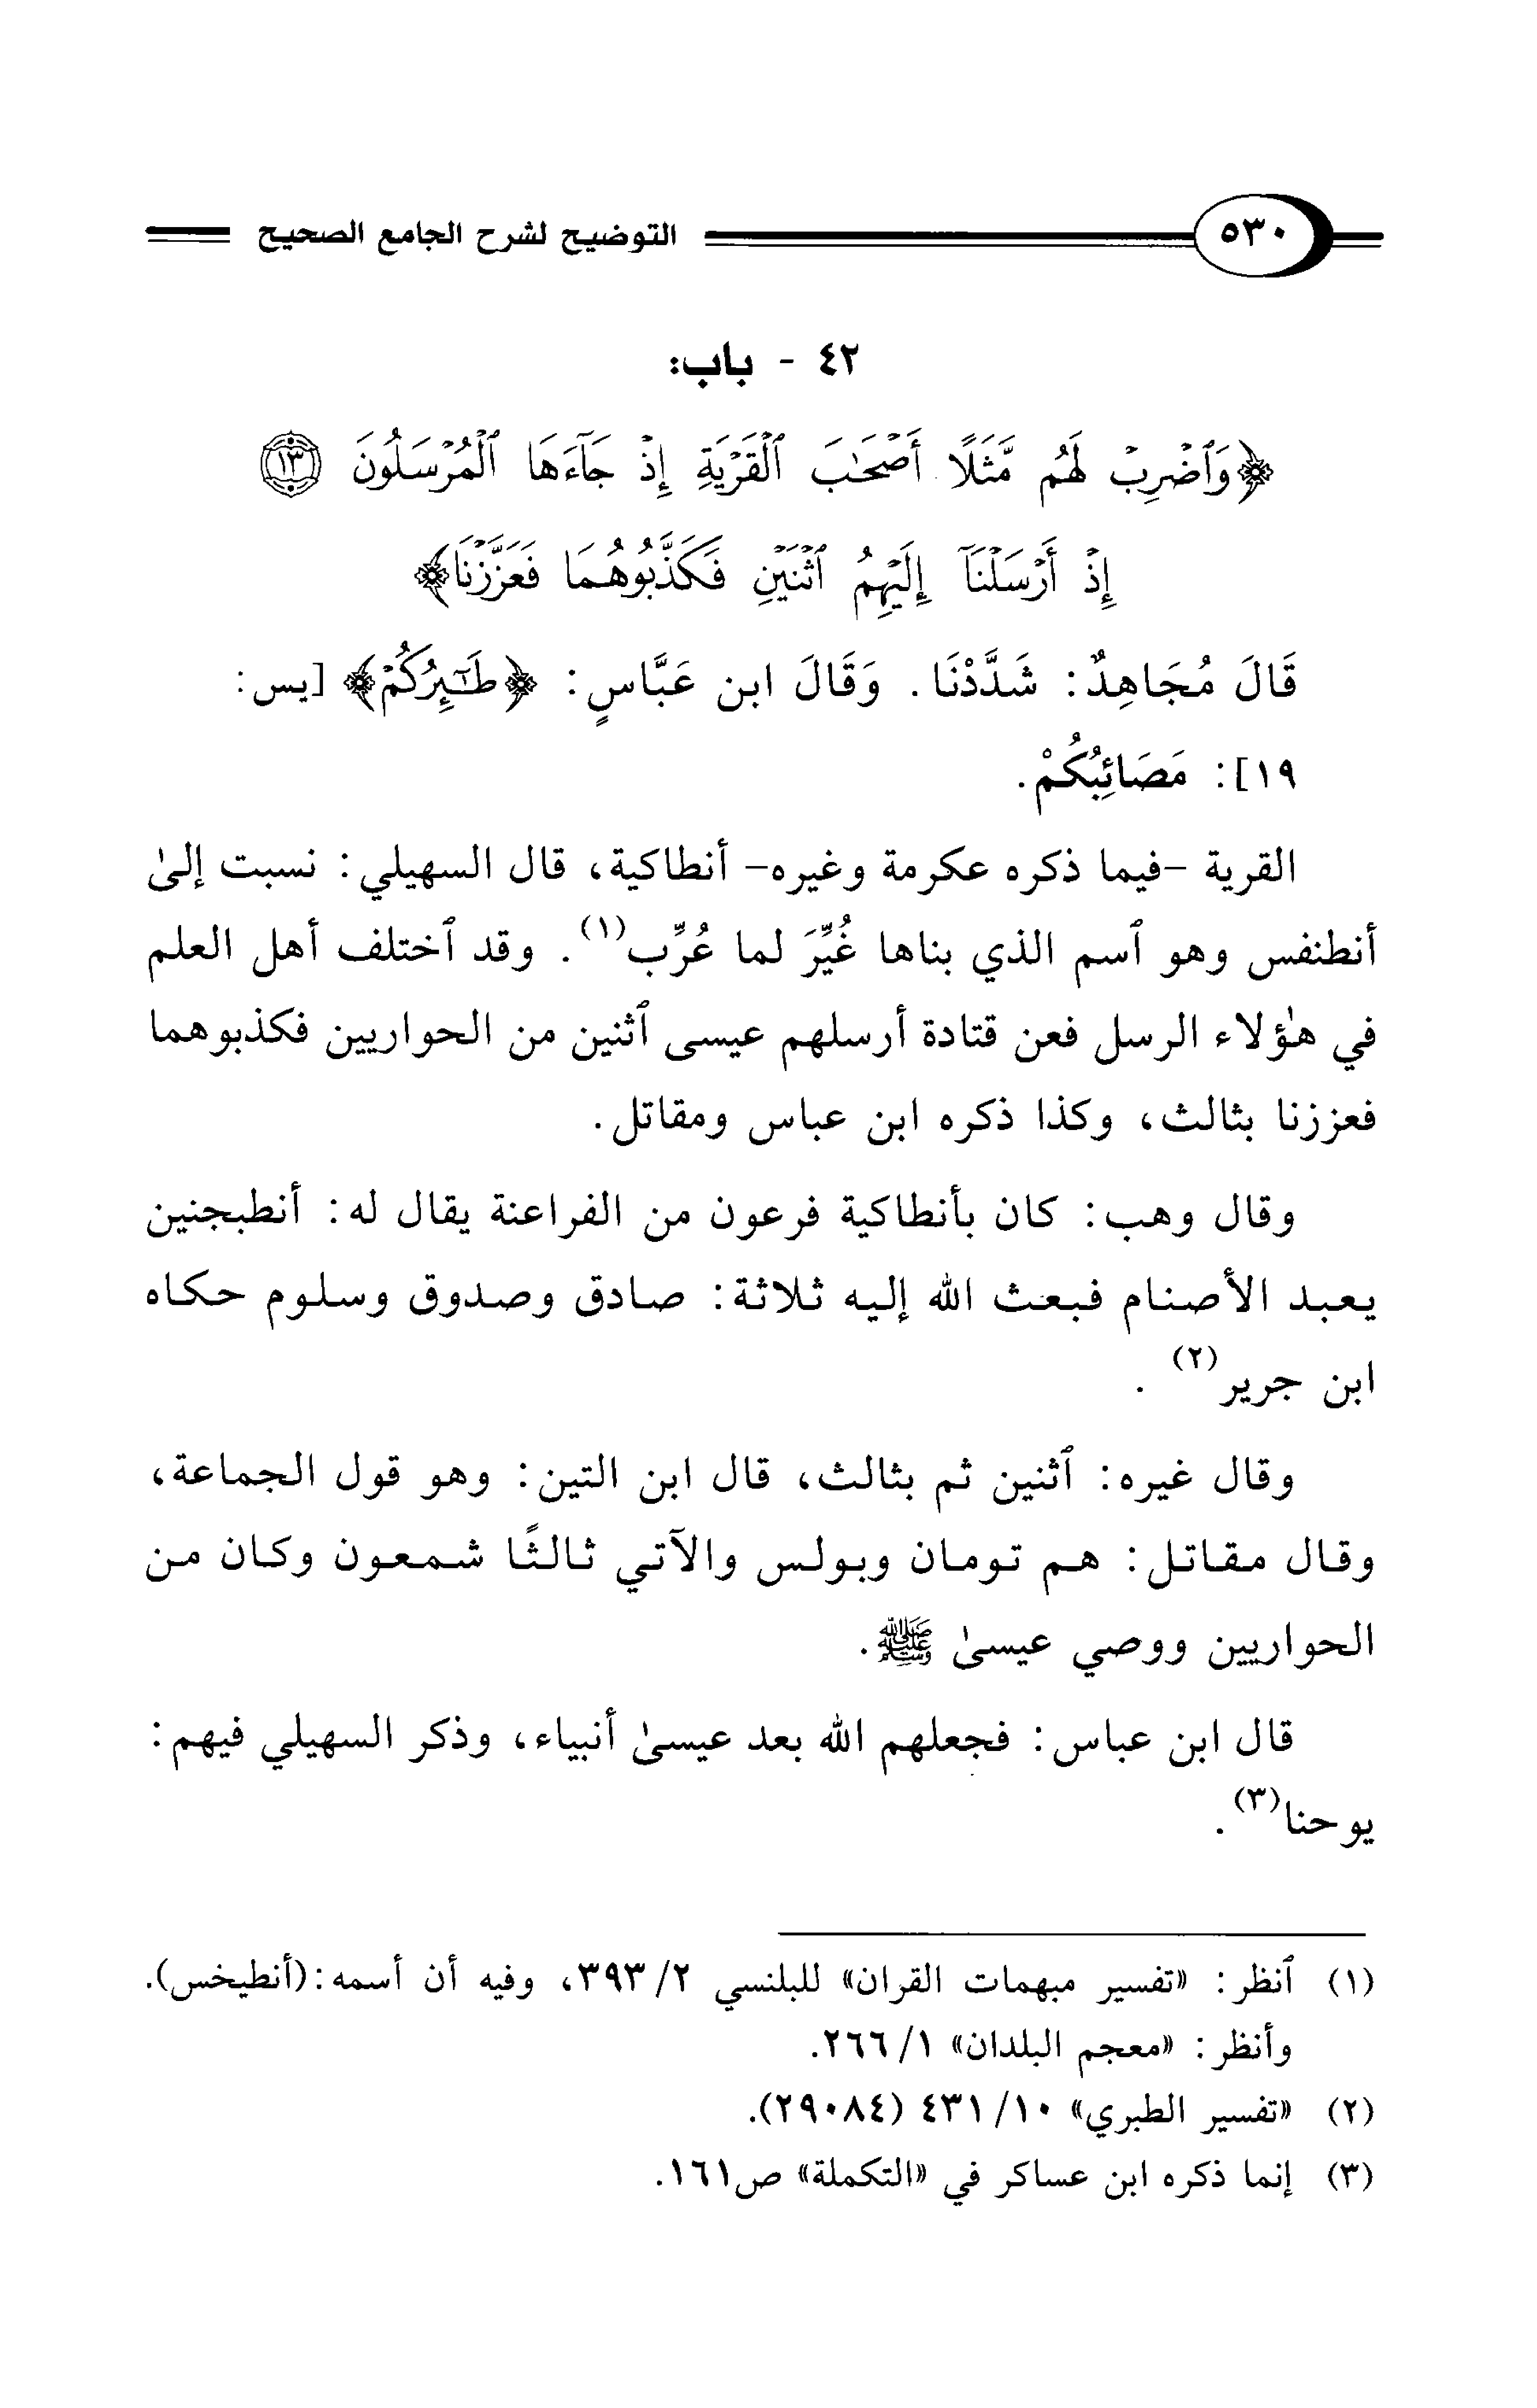 ٥٣٠ التوضيح لشرح الجامع الصحيح
٤٢ - باب:
﴿وَٱضۡرِبۡ لَهُم مَّثَلًا أَصۡحَٰبَ ٱلۡقَرۡيَةِ إِذۡ جَآءَهَا ٱلۡمُرۡسَلُونَ ١٣
إِذۡ أَرۡسَلۡنَآ إِلَيۡهِمُ ٱثۡنَيۡنِ فَكَذَّبُوهُمَا فَعَزَّزۡنَا﴾
قَالَ مُجَاهِدٌ: شَدَّدْنَا. وَقَالَ ابن عَبَّاسٍ: ﴿طَٰٓئِرُكُمۡ﴾ [يس:
١٩]: مَصَائِبُكُمْ.
القرية -فيما ذكره عكرمة وغيره- أنطاكية، قال السهيلي: نسبت إلىٰ
أنطنفس وهو ٱسم الذي بناها غُيِّرَ لما عُرِّب(١). وقد ٱختلف أهل العلم
في هٰؤلاء الرسل فعن قتادة أرسلهم عيسى ٱثنين من الحواريين فكذبوهما
فعززنا بثالث، وكذا ذكره ابن عباس ومقاتل.
وقال وهب: كان بأنطاكية فرعون من الفراعنة يقال له: أنطبجنين
يعبد الأصنام فبعث الله إليه ثلاثة: صادق وصدوق وسلوم حكاه
ابن جرير(٢).
وقال غيره: ٱثنين ثم بثالث، قال ابن التين: وهو قول الجماعة،
وقال مقاتل: هم تومان وبولس والآتي ثالثًا شمعون وكان من
الحواريين ووصي عيسىٰ ﷺ.
قال ابن عباس: فجعلهم الله بعد عيسىٰ أنبياء، وذكر السهيلي فيهم:
يوحنا(٣).
(١) ٱنظر: «تفسير مبهمات القران» للبلنسي ٢/ ٣٩٣، وفيه أن أسمه: (أنطيخس).
وأنظر: «معجم البلدان» ١/ ٢٦٦.
(٢) «تفسير الطبري» ١٠/ ٤٣١ (٢٩٠٨٤).
(٣) إنما ذكره ابن عساكر في «التكملة» ص١٦١.